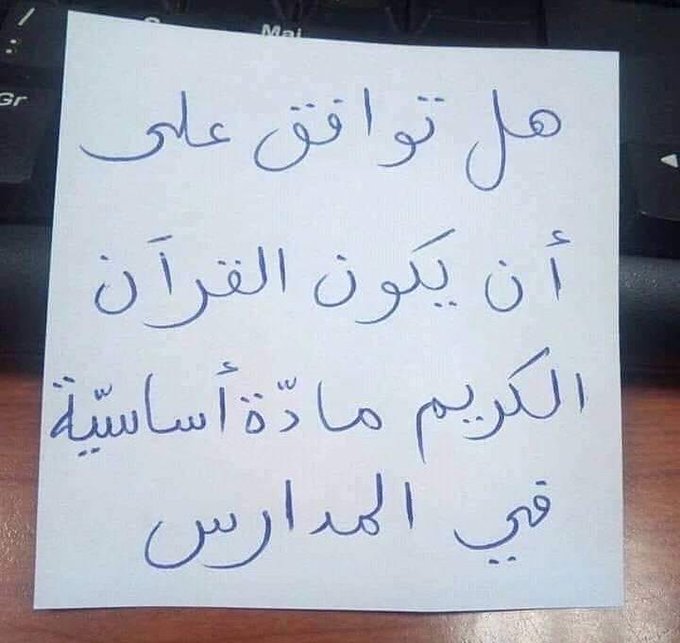 هل توافق على
أن يكون القرآن
الكريم مادّة أساسيّة
في المدارس
Maj
Gr